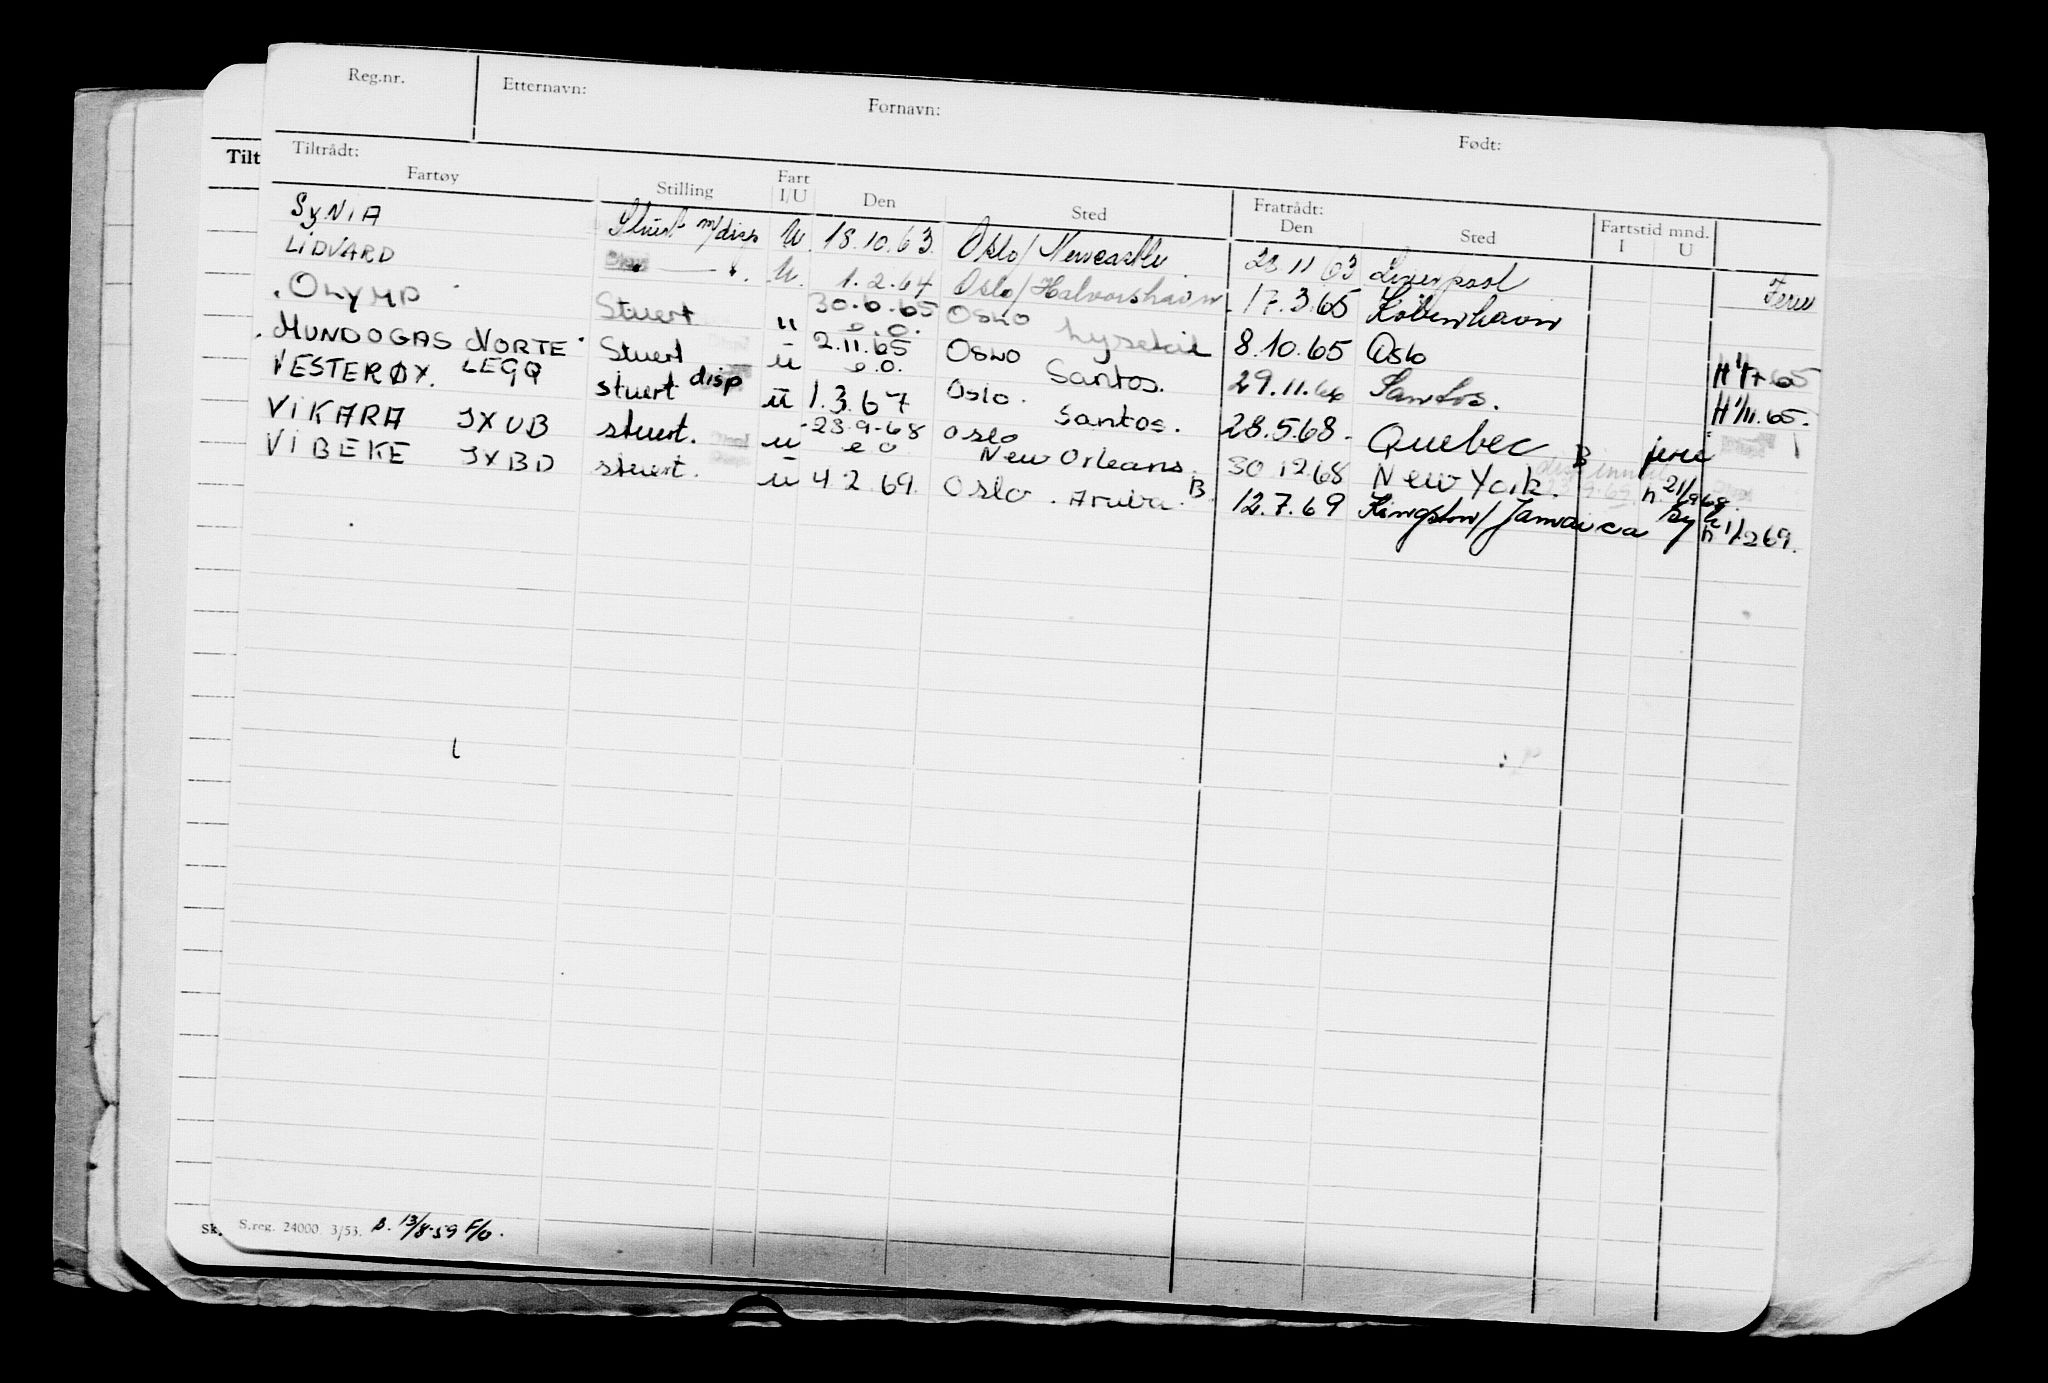 Reg.nr. Etternavn: Fornavn: Født:
Tilt
Tiltrådt: Fratrådt:
Fartøy Stilling Fart I/U Den Sted Den Sted Fartstid mnd. I U
SyNiA Stuert m/disp U. 18.10.63. Oslo/Newcastle 23 11 63 Liverpool Ferie
LiDVARD U. 1.2.64 Oslo/ 17.3.65 København
OLYMP Stuert u 30.6.65 e.o. OSLO Lysekil 8.10.65 Oslo
MUNDOGAS NORTE LEGQ Stuert ū 2.11.65 e.o. OSLO Santos. 29.11. Santos. H 65
VESTERØY. stuert disp ū 1.3.67 Oslo. Santos. 28.5.68 - Quebec H 1/11.65.
ViKARA JXUB stuert. ū 23.9.68 e o oslo New Orleans. 30 12.68 New York. B
ViBEKE JXBD stuert. ū 4.2.69. Oslo. Aruba. B. 12.7.69 Kingston/Jamaica sy h 1/269.
S.reg. 24000 3/53. B. 13/8-59 F/o.
Sk.